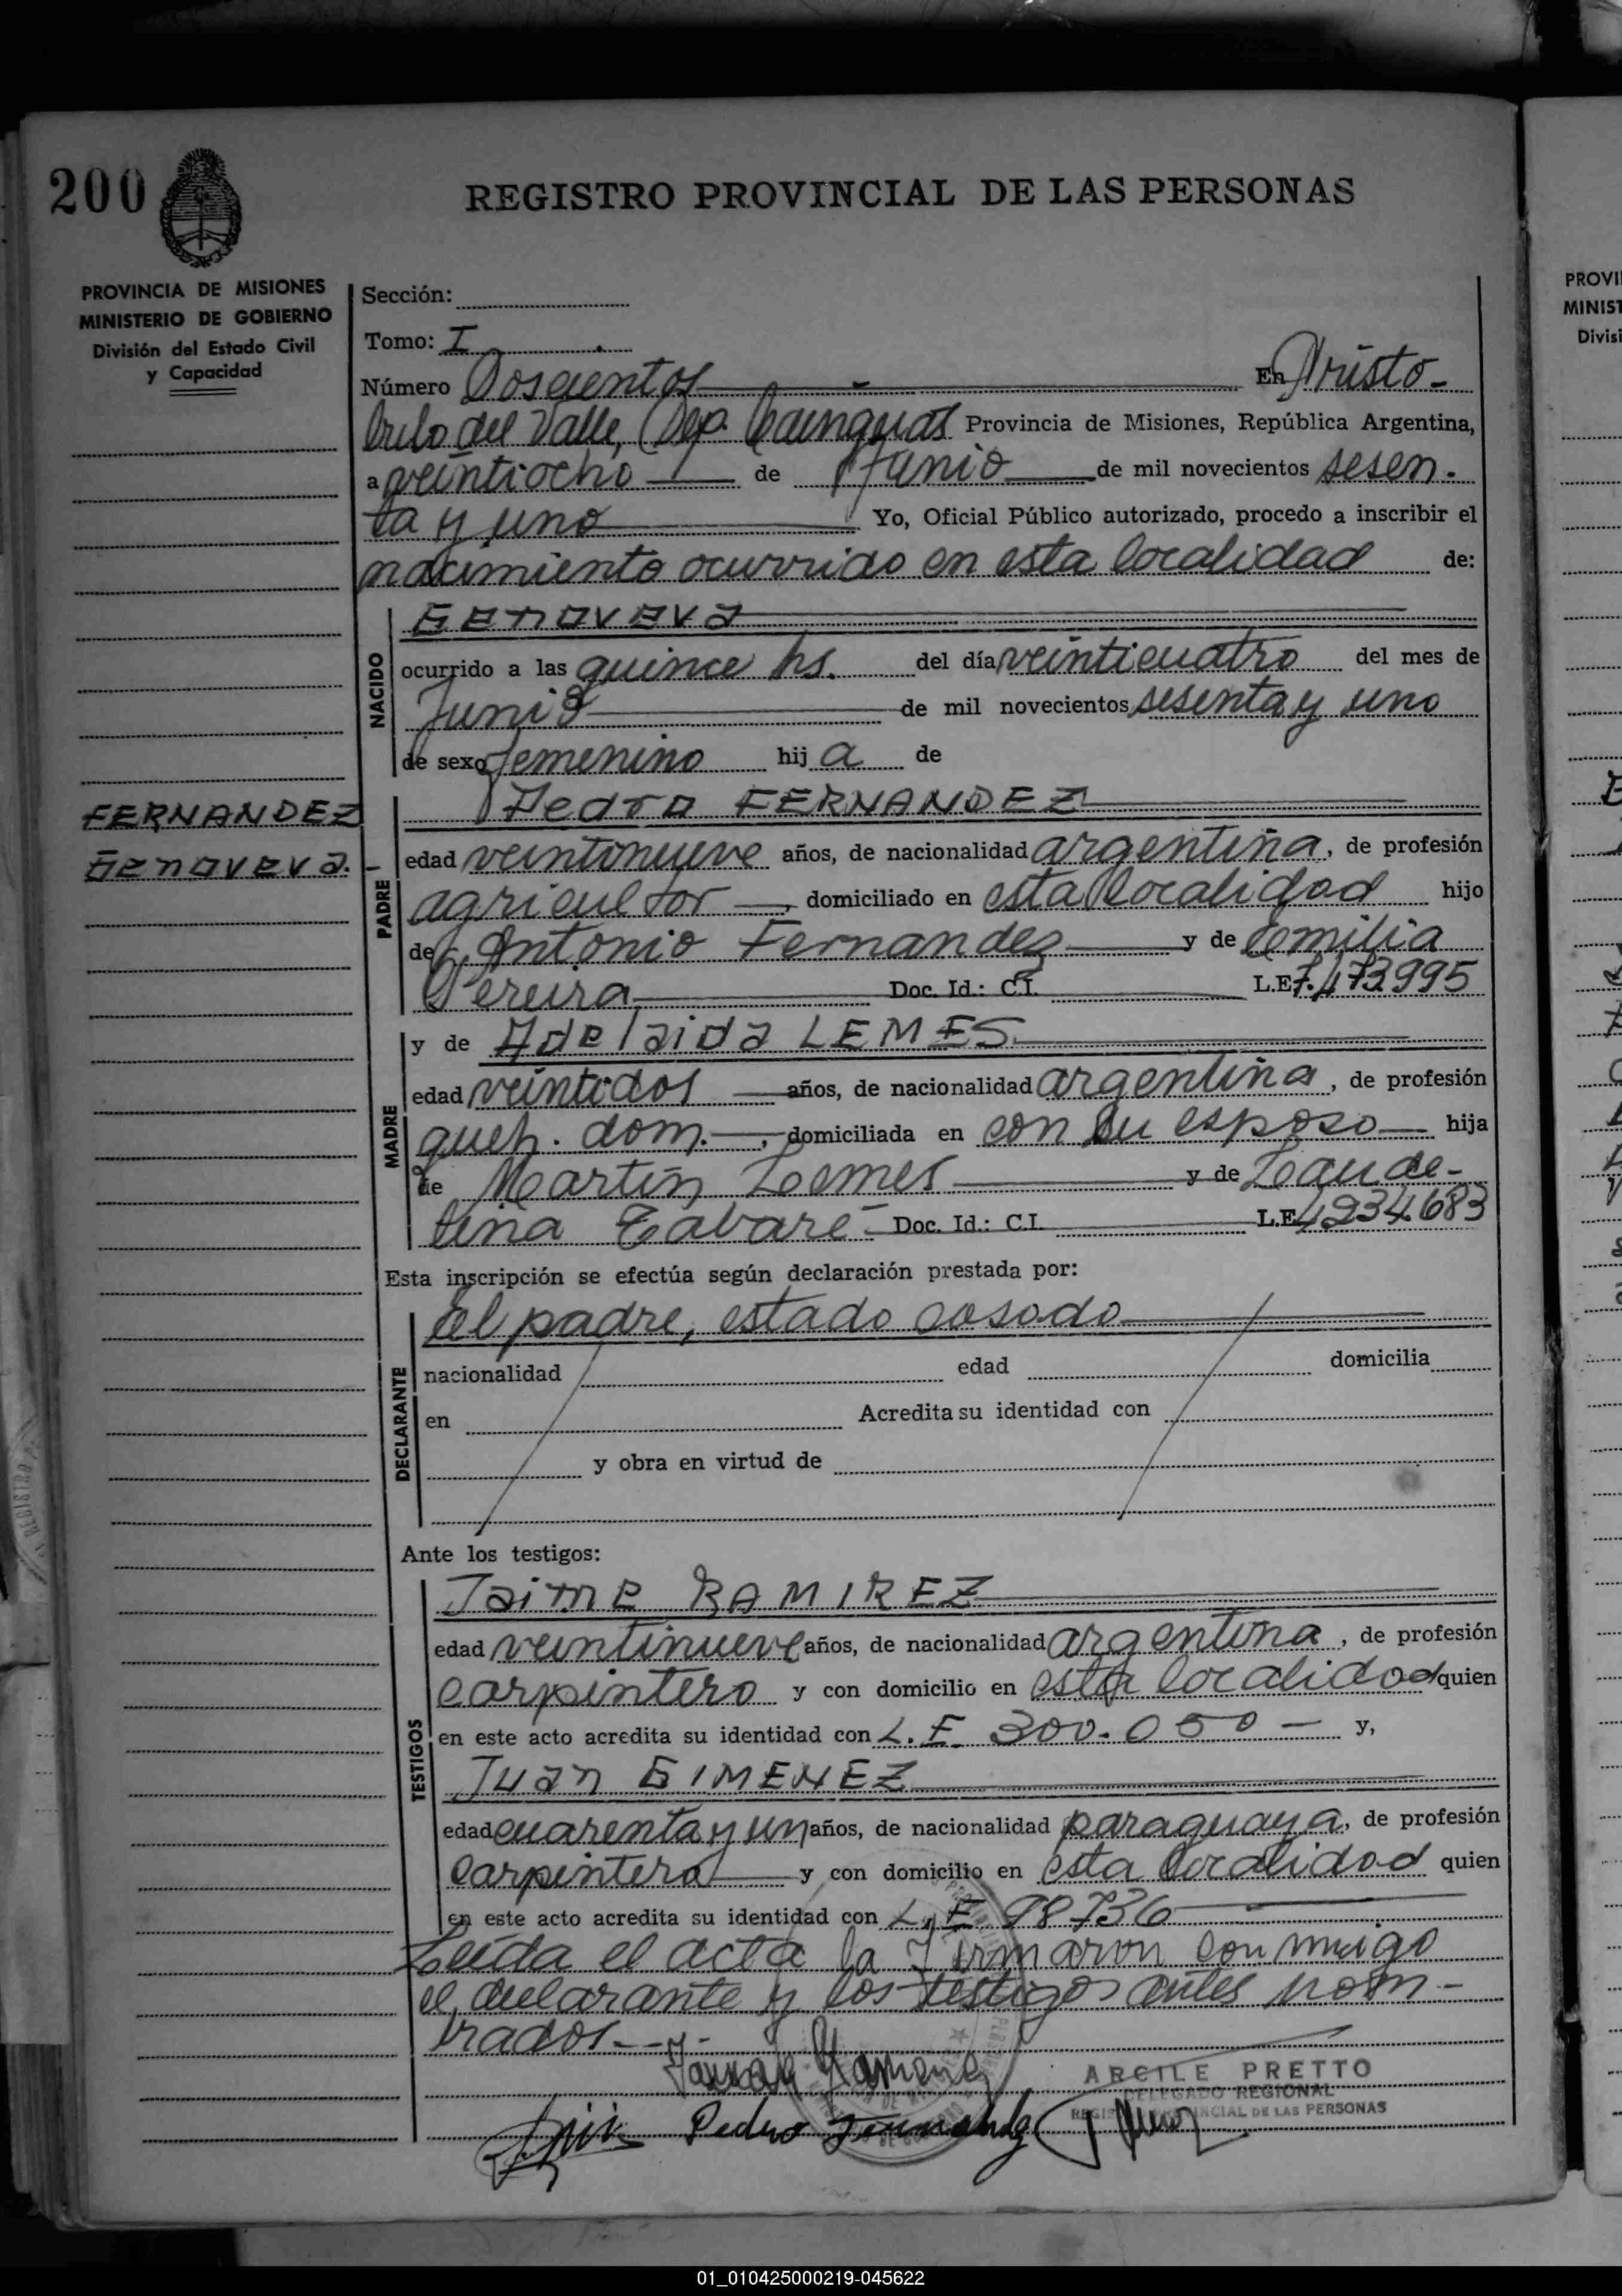 200
REGISTRO PROVINCIAL DE LAS PERSONAS
PROVINCIA DE MISIONES
MINISTERIO DE GOBIERNO
División del Estado Civil
y Capacidad
Sección:
Tomo: I
Número Doscientos En Aristo-
bulo del Valle, Dep. Cainguas Provincia de Misiones, República Argentina,
a veintiocho de Junio de mil novecientos sesen-
ta y uno Yo, Oficial Público autorizado, procedo a inscribir el
nacimiento ocurrido en esta localidad de:
NACIDO
Genoveva
ocurrido a las quince hs. del día veinticuatro del mes de
Junio de mil novecientos sesenta y uno
de sexo femenino hij a de
FERNANDEZ
Genoveva.-
PADRE
Pedro FERNANDEZ
edad veintinueve años, de nacionalidad argentina, de profesión
agricultor, domiciliado en esta localidad hijo
de Antonio Fernandez y de Emilia
Pereira Doc. Id.: C.I. L.E. 7.473995
MADRE
y de Adelaida LEMES
edad veintidos años, de nacionalidad argentina, de profesión
queh. dom., domiciliada en con su esposo hija
de Martín Lemes y de Laude-
lina Tabaré Doc. Id.: C.I. L.E. 4234683
Esta inscripción se efectúa según declaración prestada por:
DECLARANTE
el padre, estado casado
nacionalidad edad domicilia
en Acredita su identidad con
y obra en virtud de
Ante los testigos:
TESTIGOS
Jaime RAMIREZ
edad veintinueve años, de nacionalidad argentina, de profesión
carpintero y con domicilio en esta localidad quien
en este acto acredita su identidad con L.E. 300.050 - y,
Juan GIMENEZ
edad cuarenta y un años, de nacionalidad paraguaya, de profesión
carpintero y con domicilio en esta localidad quien
en este acto acredita su identidad con L.E. 98736
Leída el acta la firmaron conmigo
el declarante y los testigos antes nom-
brados.--
ARCILE PRETTO
DELEGADO REGIONAL
REGISTRO PROVINCIAL DE LAS PERSONAS
Pedro Fernandez
PROVI
MINIST
Divisi
01_010425000219-045622